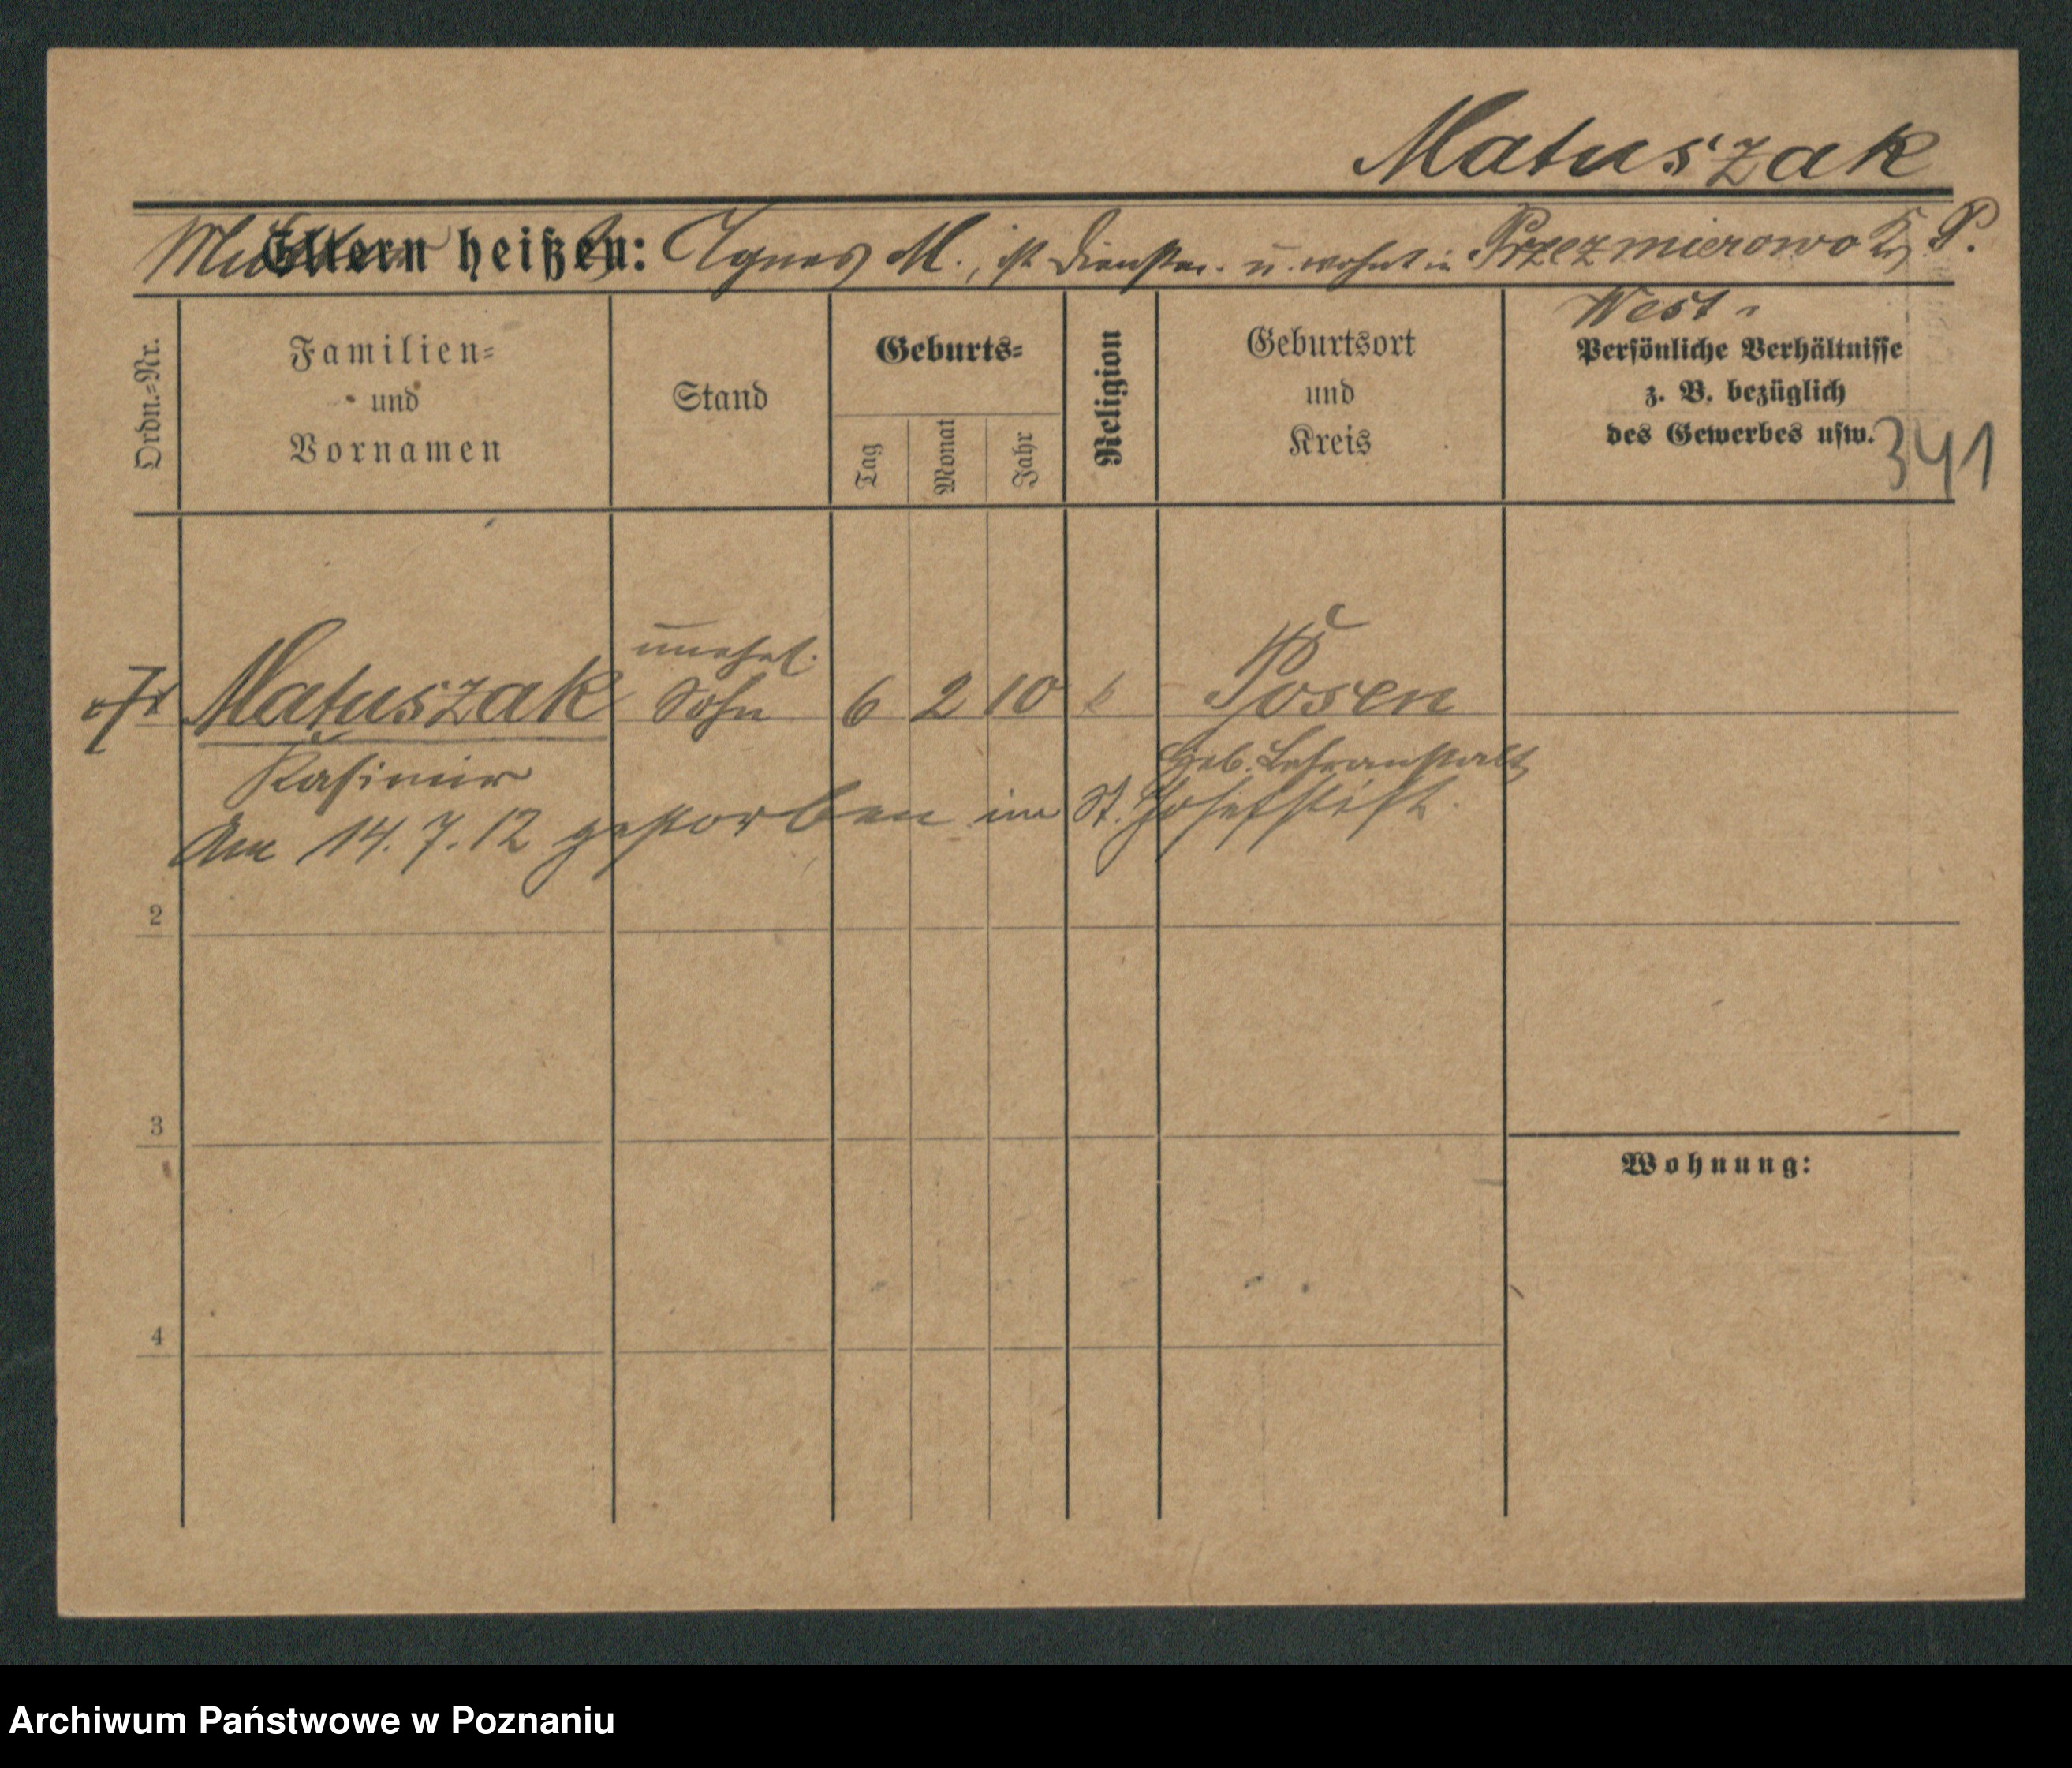 Matuszak
Mutter
Eltern heißen: Agnes M., ist Dienstm. u. wohnt in Przezmierowo Kr. P.
West.
Ordn.-Nr.
Familien-
und
Vornamen
Stand
Geburts-
Tag
Monat
Jahr
Religion
Geburtsort
und
Kreis
Persönliche Verhältnisse
z. B. bezüglich
des Gewerbes usw.
341
unehel.
Matuszak Sohn 6 2 10 k Posen
Kasimir
Geb. Lehranstalt
Am 14.7.12 gestorben im St. Josefstift.
2
3
Wohnung:
4
Archiwum Państwowe w Poznaniu